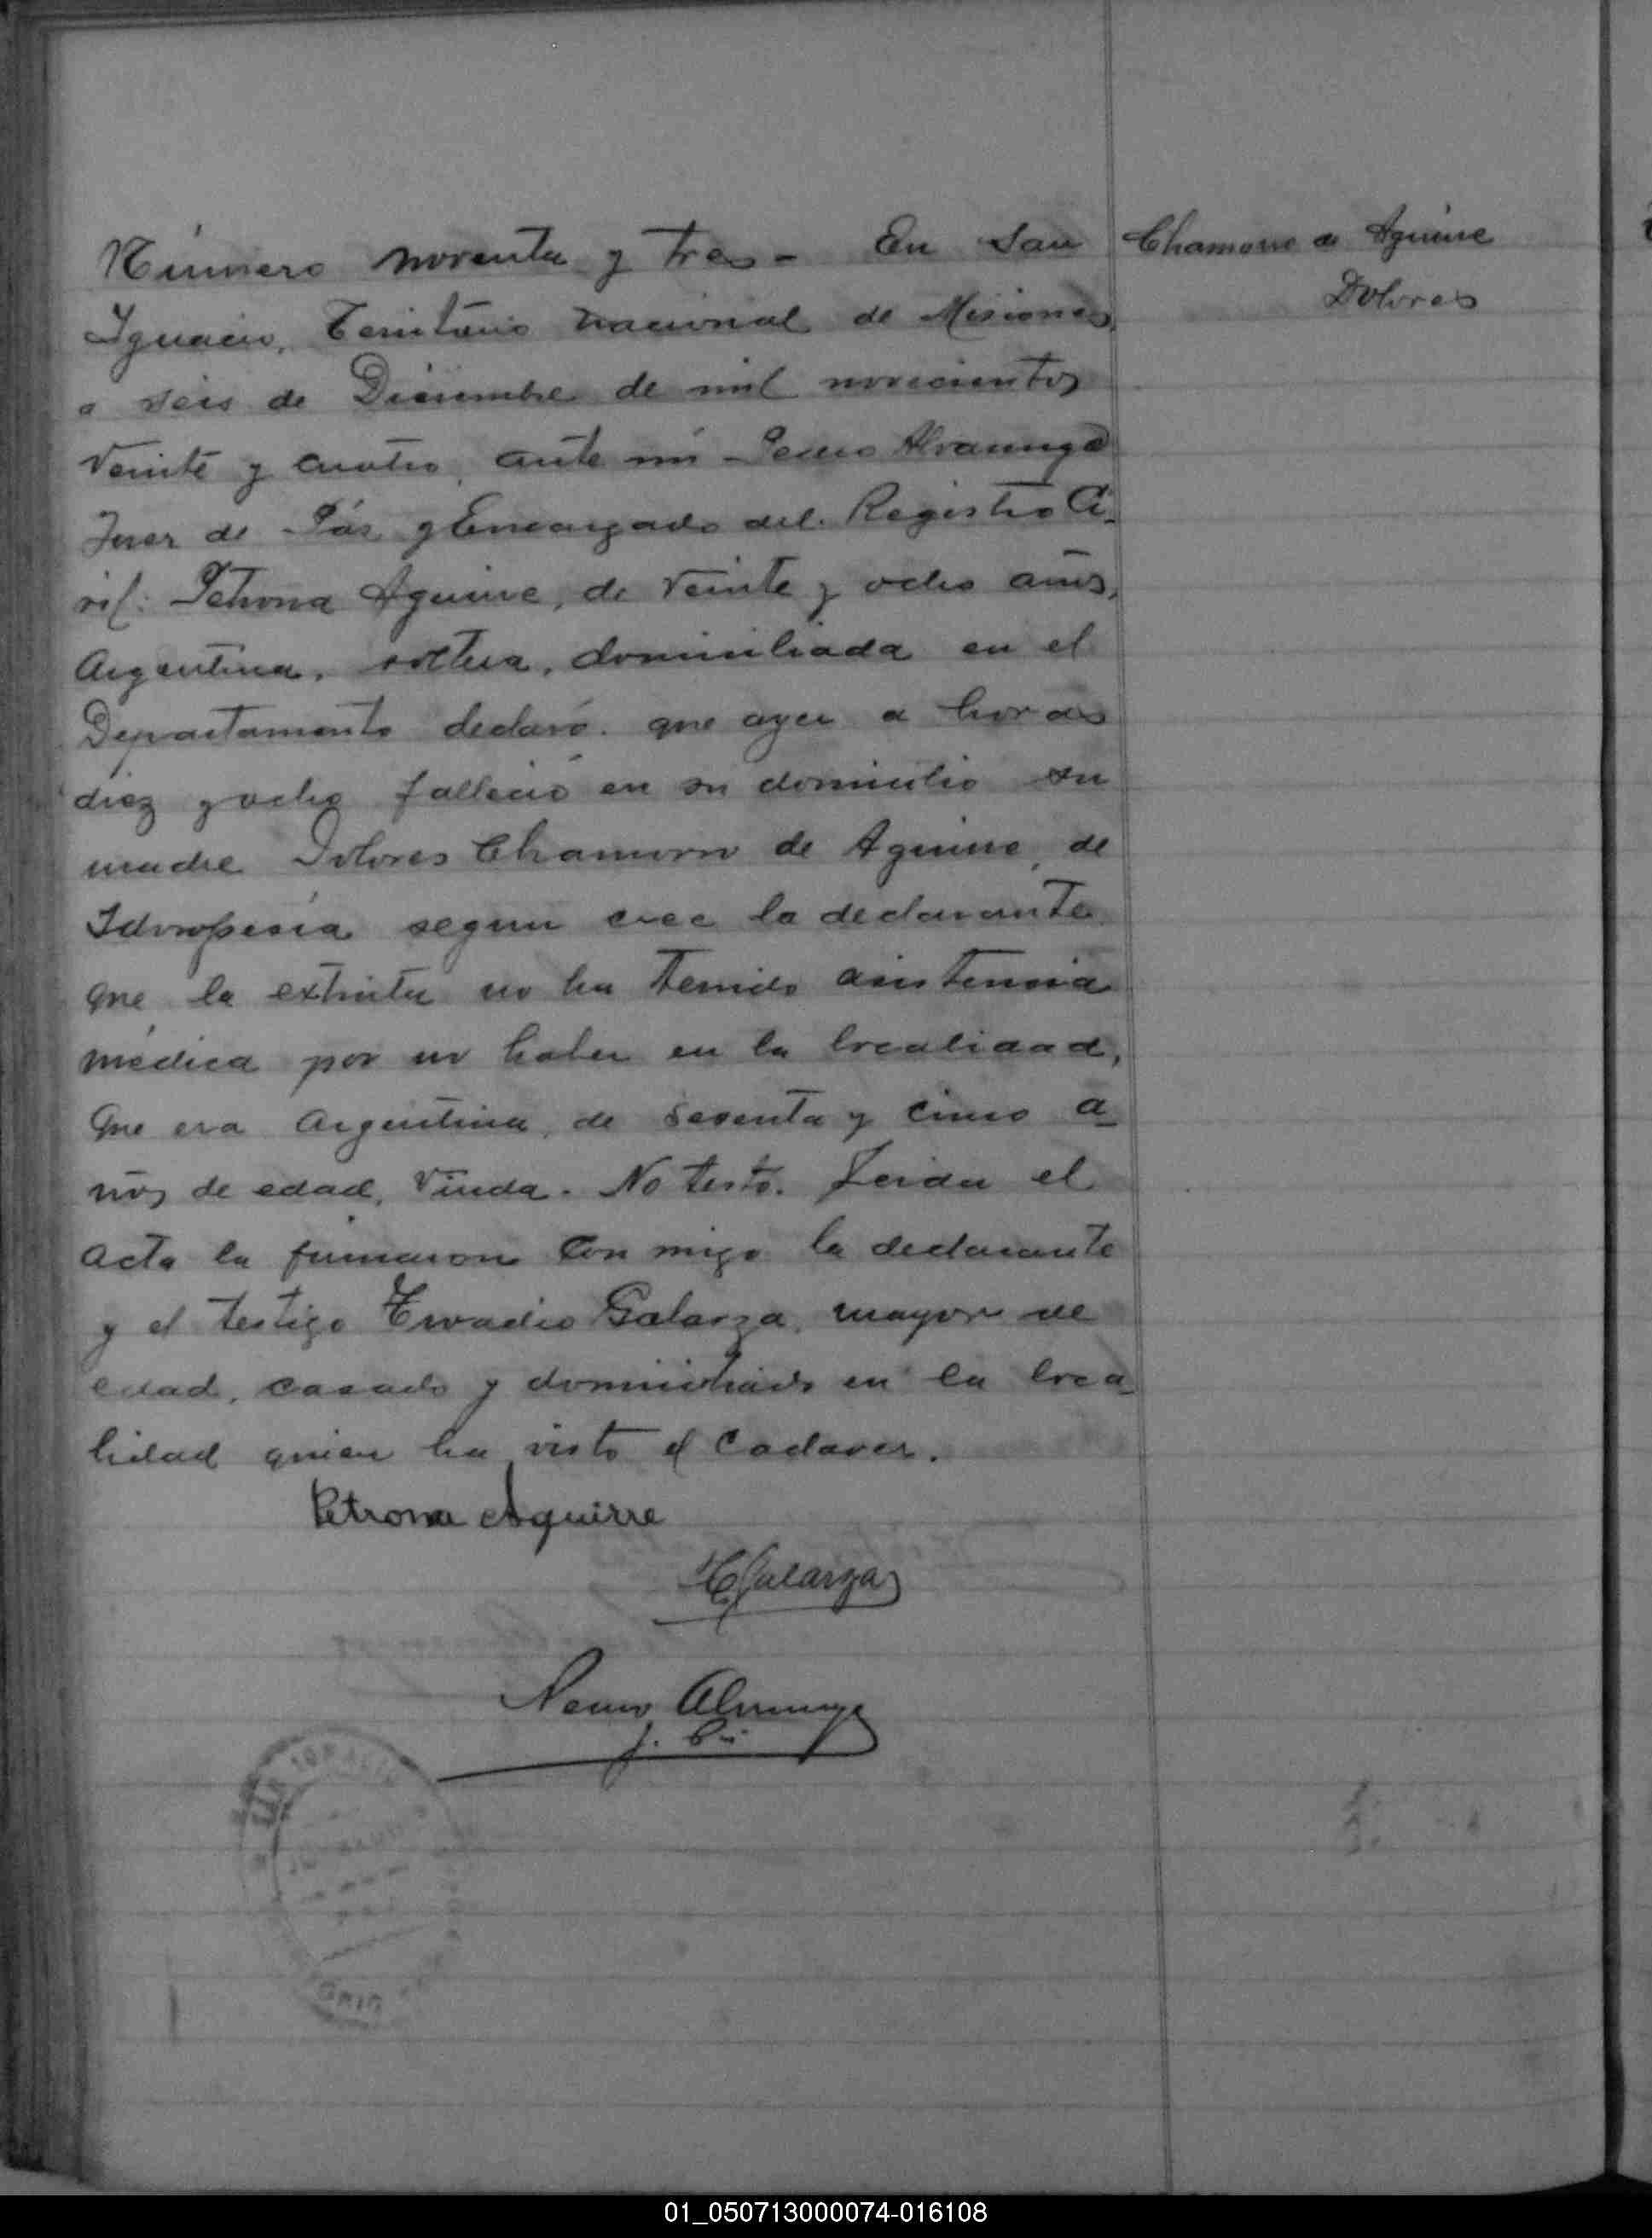 Número noventa y tres - En San
Ignacio, Territorio nacional de Misiones,
a seis de Diciembre de mil novecientos
veinte y cuatro, ante mi
Juez de Páz y Encargado del Registro Ci-
vil: Petrona Aguirre, de veinte y ocho años,
Argentina, soltera, domiciliada en el
Departamento declaró: que ayer a horas
diez y ocho falleció en su domicilio su
madre Dolores Chamorro de Aguirre, de
Idropesía segun cree la declarante
que la extinta no ha tenido asistencia
médica por no haber en la localidad,
Que era Argentina, de y cinco a-
ños de edad, Viuda. No testó. Leida el
acta la firmaron con migo la declarante
y el testigo Galarza, mayor de
edad, casado y domiciliado en la loca-
lidad quien ha visto el cadaver.
Petrona Aguirre
Galarza
J. 
Chamorro de Aguirre
Dolores
SAN IGNACIO
01_050713000074-016108